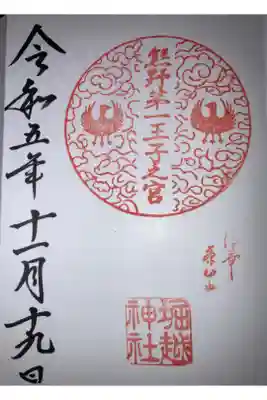 熊野第一王子之宮
堀越
神社
令和五年十一月十九日